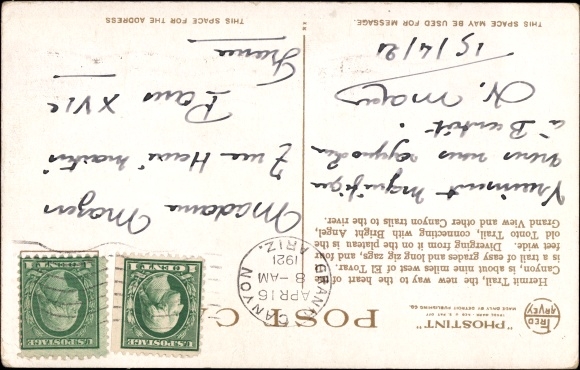 FRED HARVEY
"PHOSTINT"
TRADE MARK - REG. U.S. PAT. OFF.
MADE ONLY BY DETROIT PUBLISHING CO.
POST C
Hermit Trail, the new way to the heart of the
Canyon, is about nine miles west of El Tovar. It
is a trail of easy grades and long zig zags, and four
feet wide. Diverging from it on the plateau is the
old Tonto Trail, connecting with Bright Angel,
Grand View and other Canyon trails to the river.
GRAND CANYON
APR 16
8-AM
1921
ARIZ.
1 CENT 1
1 CENT 1
Vraiment magnifique
nous nous rappelons
à Bientôt.
N. Mayer
15/4/21
Madame Mayer
7 rue Henri
Paris XVIe
France
THIS SPACE MAY BE USED FOR MESSAGE.
THIS SPACE FOR THE ADDRESS